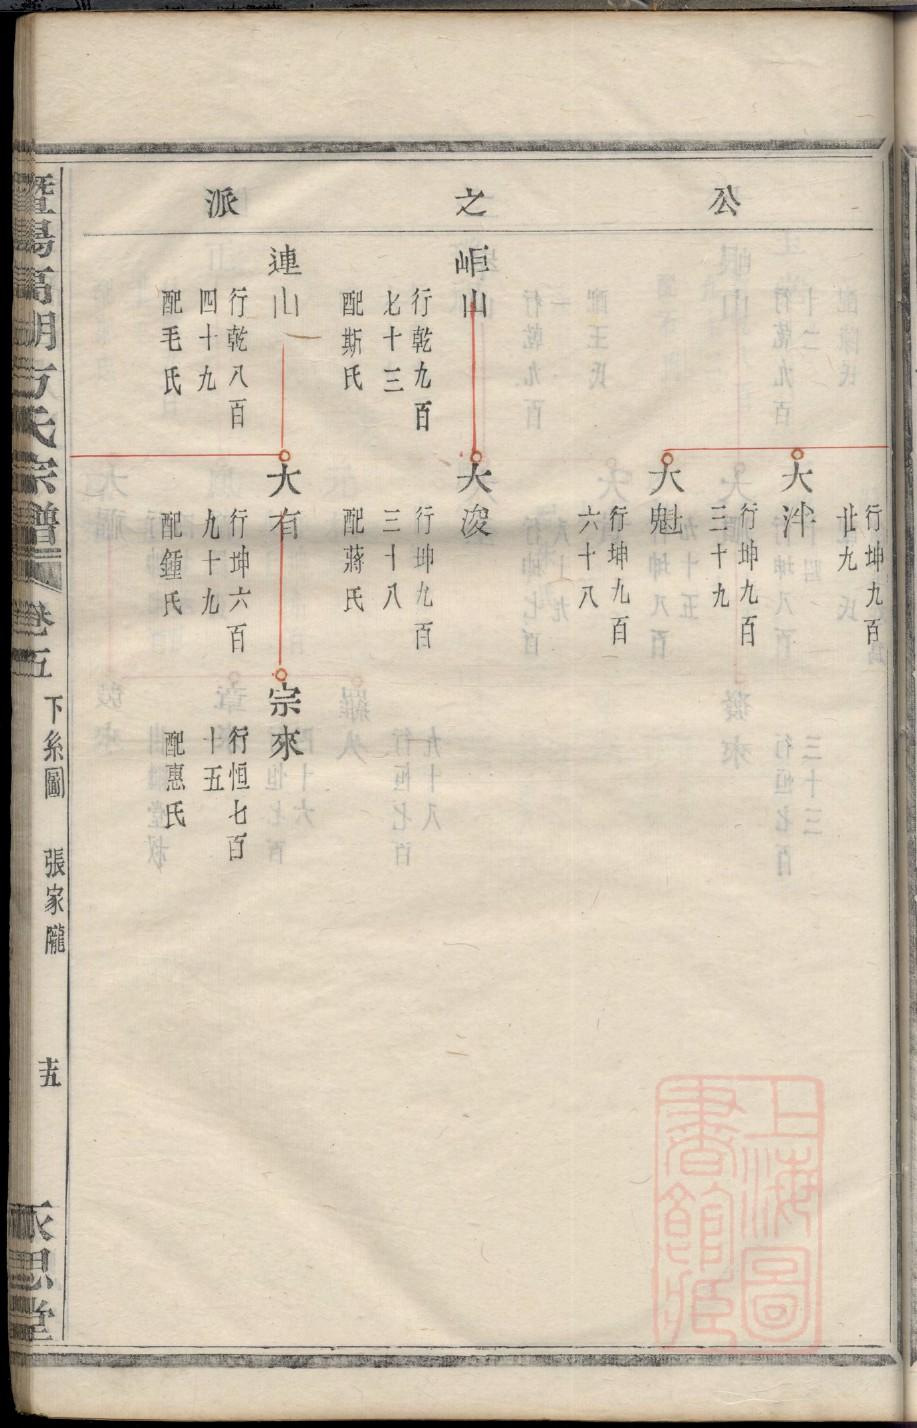 公之派
大泮
行坤九百
廿九
大魁
行坤九百
三十九
行坤九百
六十八
岠山
行乾九百
七十三
配斯氏
大浚
行坤九百
三十八
配蔣氏
連山
行乾八百
四十九
配毛氏
大有
行坤六百
九十九
配鍾氏
宗來
行恒七百
十五
配惠氏
暨陽高湖方氏宗譜
卷五
下糸圖
張家隴
十五
永思堂
上海圖書館藏